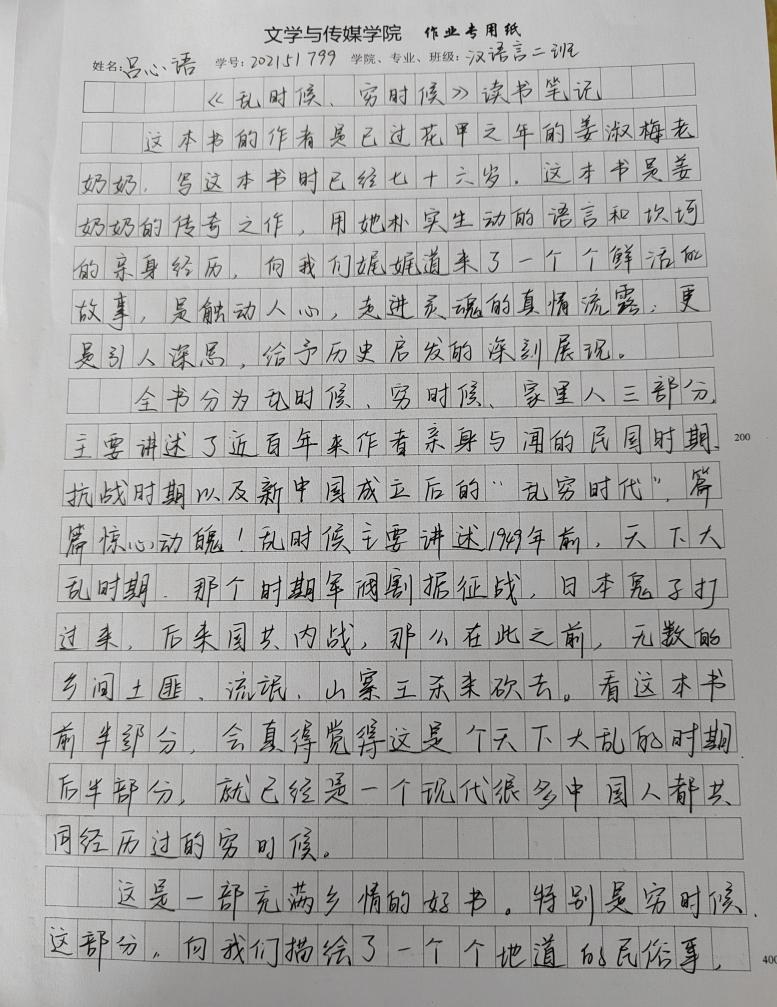 文学与传媒学院 作业专用纸
姓名:吕心语 学号:202151799 学院、专业、班级:汉语言二班
《乱时候、穷时候》读书笔记
这本书的作者是已过花甲之年的姜淑梅老
奶奶，写这本书时已经七十六岁。这本书是姜
奶奶的传奇之作，用她朴实生动的语言和坎坷
的亲身经历，向我们娓娓道来了一个个鲜活的
故事，是触动人心，走进灵魂的真情流露；更
是引人深思，给予历史启发的深刻展现。
全书分为乱时候、穷时候、家里人三部分，
主要讲述了近百年来作者亲身与闻的民国时期、
200
抗战时期以及新中国成立后的“乱穷时代”，篇
篇惊心动魄！乱时候主要讲述1949年前，天下大
乱时期．那个时期军阀割据征战，日本鬼子打
过来，后来国共内战，那么在此之前，无数的
乡间土匪、流氓、山寨王杀来砍去。看这本书
前半部分，会真得觉得这是个天下大乱的时期．
后半部分，就已经是一个现代很多中国人都共
同经历过的穷时候。
这是一部充满乡情的好书。特别是穷时候．
这部分，向我们描绘了一个个地道的民俗事，
400